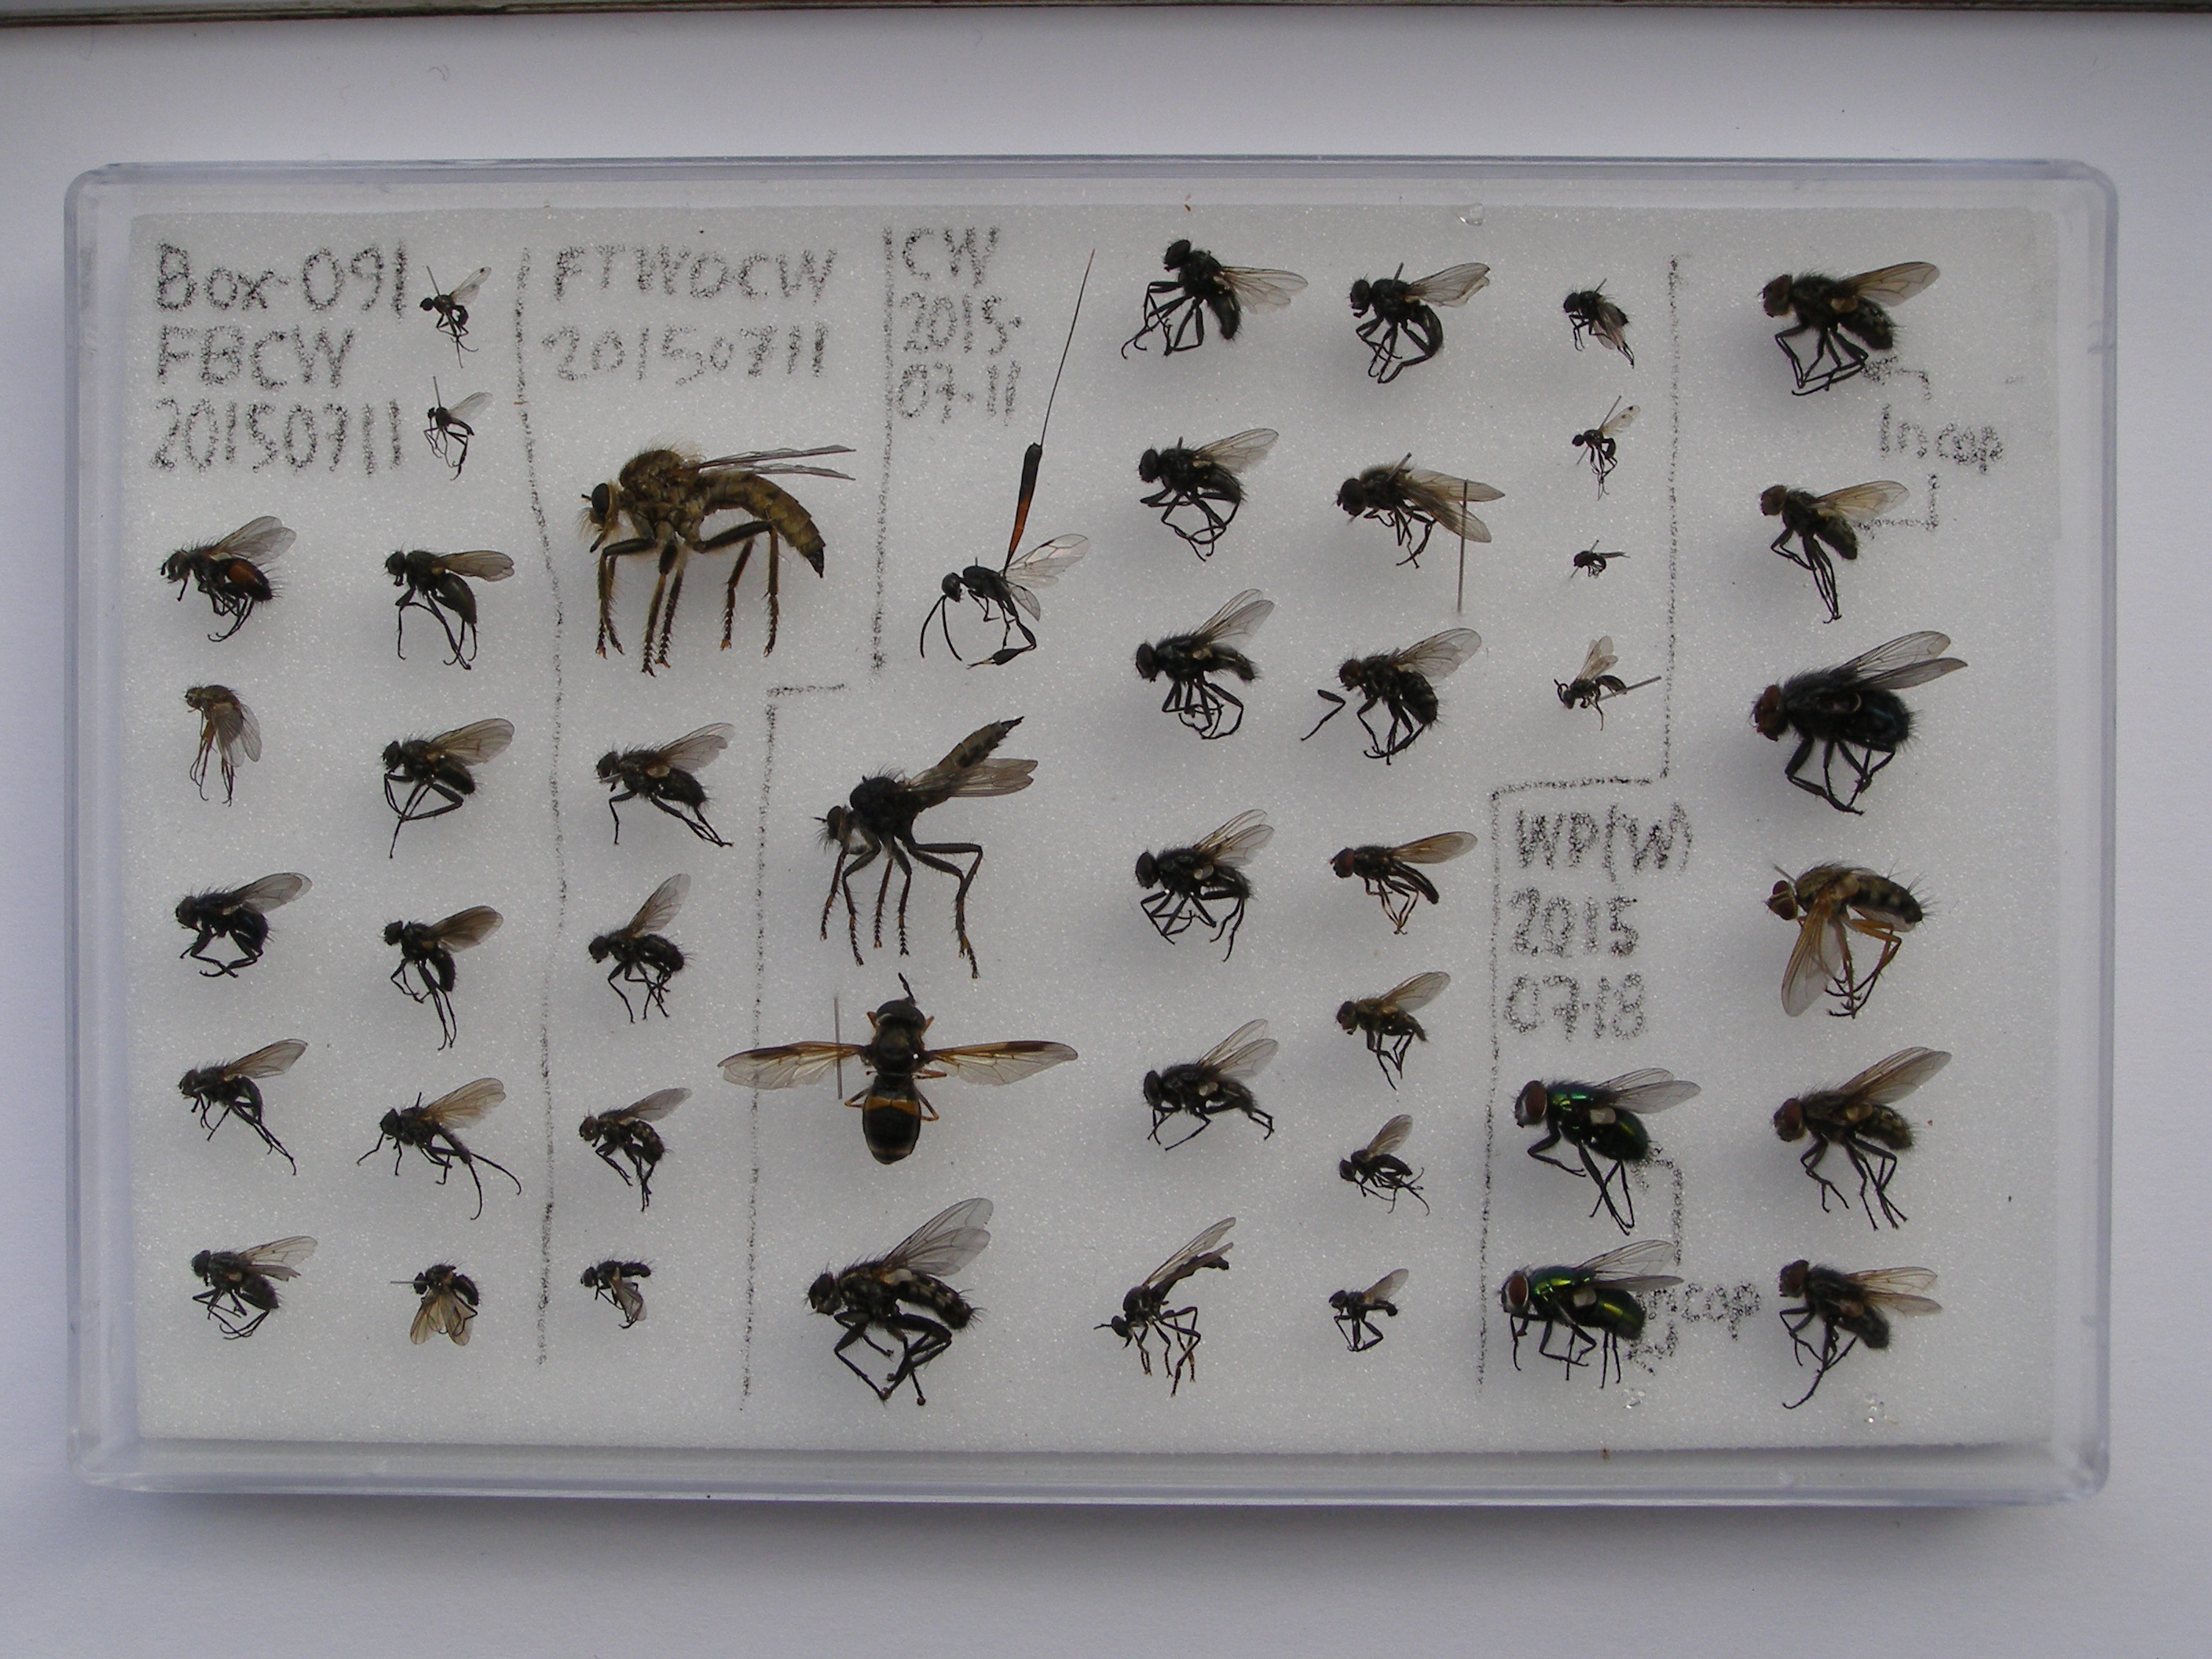 Box-091
FBCW
20150711
FTWOCW
20150711
CW
2015
07-11
In cop
WP(W)
2015
0718
In cop